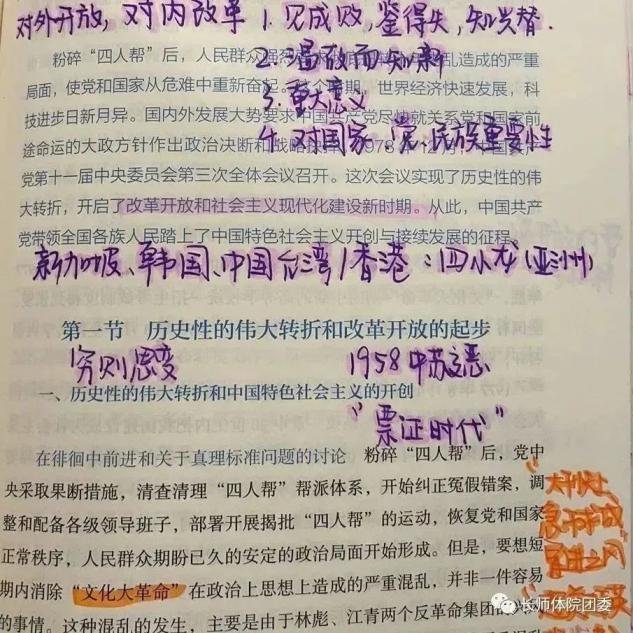 对外开放，对内改革
1. 见成败，鉴得失，知兴替.
粉碎“四人帮”后，人民群众强烈 乱造成的严重
2. 温故而知新
局面，使党和国家从危难中重新奋起。这个时期，世界经济快速发展，科
3. 重大意义
技进步日新月异。国内外发展大势要求中国共产党尽快就关系党和国家前
4. 对国家、党、民族重要性
途命运的大政方针作出政治决断和战略抉择。1978年12月，中国共产
党第十一届中央委员会第三次全体会议召开。这次会议实现了历史性的伟
大转折，开启了改革开放和社会主义现代化建设新时期。从此，中国共产
党带领全国各族人民踏上了中国特色社会主义开创与接续发展的征程。
新加坡、韩国、中国台湾/香港：四小龙(亚洲)
第一节 历史性的伟大转折和改革开放的起步
穷则思变
1958中苏交恶
一、历史性的伟大转折和中国特色社会主义的开创
“票证时代”
在徘徊中前进和关于真理标准问题的讨论 粉碎“四人帮”后，党中
央采取果断措施，清查清理“四人帮”帮派体系，开始纠正冤假错案，调
整和配备各级领导班子，部署开展揭批“四人帮”的运动，恢复党和国家
正常秩序，人民群众期盼已久的安定的政治局面开始形成。但是，要想短
期内消除“文化大革命”在政治上思想上造成的严重混乱，并非一件容易
的事情。这种混乱的发生，主要是由于林彪、江青两个反革命集团的
大干快上
急于求成
冒进之风
长师体院团委